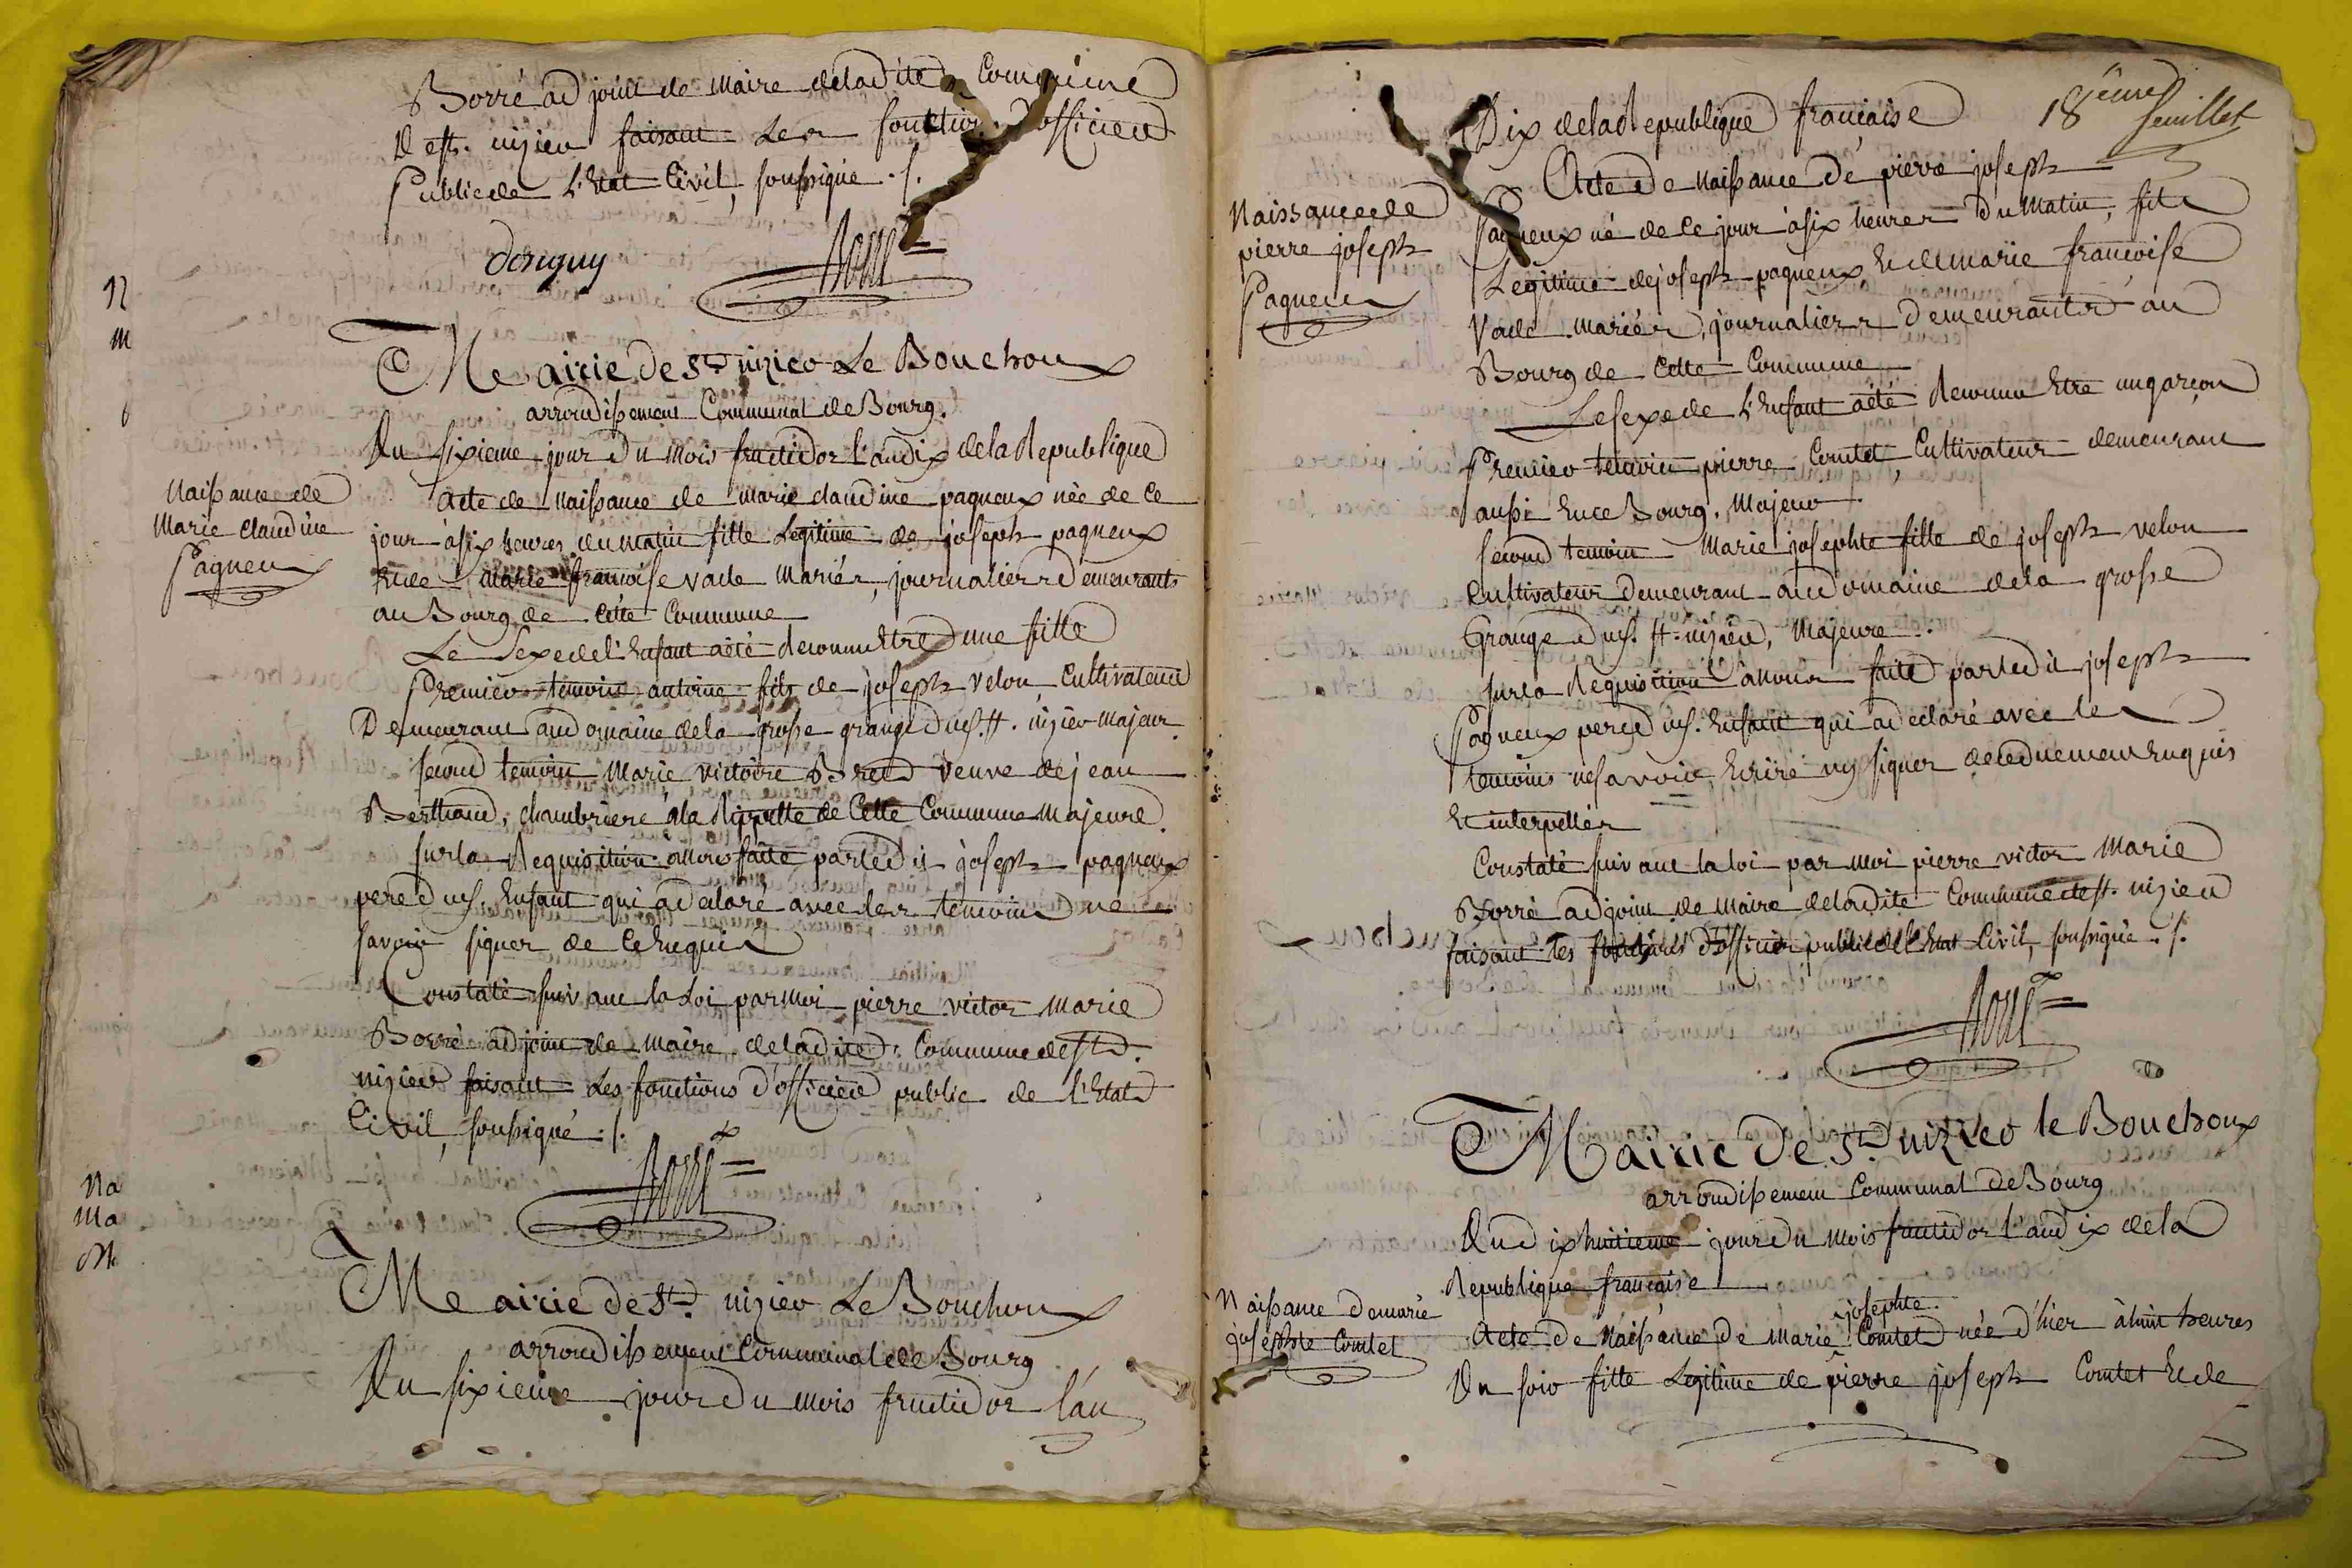 Borré adjoint de maire deladite Commune
De st. nizier faisant Les fonctions d'officier
Public de L'Etat Civil, soussigné ./.
dorigny Borré
Mairie de St nizier Le Bouchoux
arrondissement Communal de Bourg.
Du sixieme jour du mois fructidor l'an dix de la Republique
Naissance de
Marie Claudine
Paqueux
acte de naissance de marie claudine paqueux née de ce
jour à six heures du matin fille Legitime de joseph paqueux
Et de marie francoise vade mariés, journaliers demeurants
au Bourg de cette Commune
Le Sexe de l'Enfant a été reconnu Etre une fille
Premier temoin antoine fils de joseph velon, Cultivateur
Demeurant au domaine de la grosse grange dud. st. nizier majeur.
second temoin Marie victoire Brend veuve de jean
Berthaud, chambriere à la de Cette Commune majeure.
sur la Requisition a nous faite par ledit joseph paqueux
pere dud. Enfant qui a declaré avec les temoins ne
savoir signer de ce Enquis
Constaté suivant la Loi par moi pierre victor marie
Borré adjoint de maire de ladite Commune de st.
nizier faisant Les fonctions d'officier public de l'Etat
Civil, soussigné ./.
Borré
Mairie de St. nizier Le Bouchoux
arrondissement Communal de Bourg
Du sixieme jour du mois fructidor l'an
18eme feuillet
Dix de la Republique francaise
Naissance de
pierre joseph
Paqueux
Acte de naissance de pierre joseph
Paqueux né de ce jour à six heures du matin, fils
Legitime de joseph paqueux Et de marie francoise
Vade mariés, journaliers demeurants au
Bourg de Cette Commune
Le sexe de L'Enfant a été Reconnu Etre un garcon
Premier temoin pierre Comtet, Cultivateur demeurant
aussi En ce Bourg, Majeur
second temoin Marie josephte fille de joseph velon
Cultivateur demeurant au domaine de la grosse
Grange dud. st. nizier, Majeure.
sur la Requisition à nous faite par ledit joseph
Paqueux pere dud. Enfant qui a declaré avec les
temoins ne savoir Ecrire ny signer de ce duement Enquis
Et interpellés
Constaté suivant la loi par moi pierre victor Marie
Borré adjoint de maire de ladite Commune de st. nizier
faisant les fonctions d'officier public de l'Etat Civil, soussigné ./.
Borré
Mairie de St nizier le Bouchoux
arrondissement Communal de Bourg
Du dix huitieme jour du mois fructidor l'an dix de la
Republique francaise
Naissance de marie
josephte Comtet
josephte
Acte de Naissance de Marie Comtet née d'hier à huit heures
Du soir fille Legitime de pierre joseph Comtet Et de